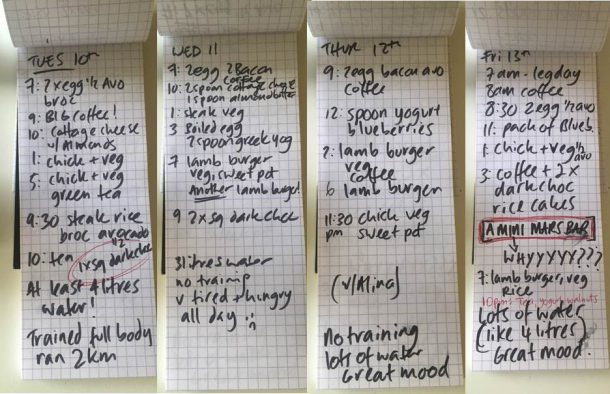 TUES 10th
7: 2xegg ½ avo
broc
9: BIG coffee!
10: Cottage cheese
w/ Almonds
1: chick + veg
5: chick + veg
green tea
9:30 steak rice
broc avocado
10: tea 1x sq dark choc
At least 4 litres
water!
Trained full body
ran 2km
WED 11
7: 2egg 2Bacon
coffee
10: 2spoon cottage cheese
1 spoon almond butter
1: steak veg
3 Boiled egg
2 spoon greek yog
7 lamb burger
veg, sweet pot
Another lamb burger!
9 2x sq dark choc
3 litres water
no training
v tired + hungry
all day
THUR 12th
9: 2egg bacon avo
coffee
12: spoon yogurt
blueberries
2: lamb burger
veg
coffee
6 lamb burger
11:30 chick veg
pm sweet pot
(w/Alina)
no training
lots of water
Great mood
Fri 13th
7am - legday
8am coffee
8:30 2egg ½ avo
11: pack of Blueb.
1: chick + veg ½
avo
3: coffee + 2x
dark choc
rice cakes
A MINI MARS BAR
WHYYYYY???
7: lamb burger, veg
Rice
10pm: Tea, yogurt walnuts
Lots of water
(like 4 litres)
Great mood.